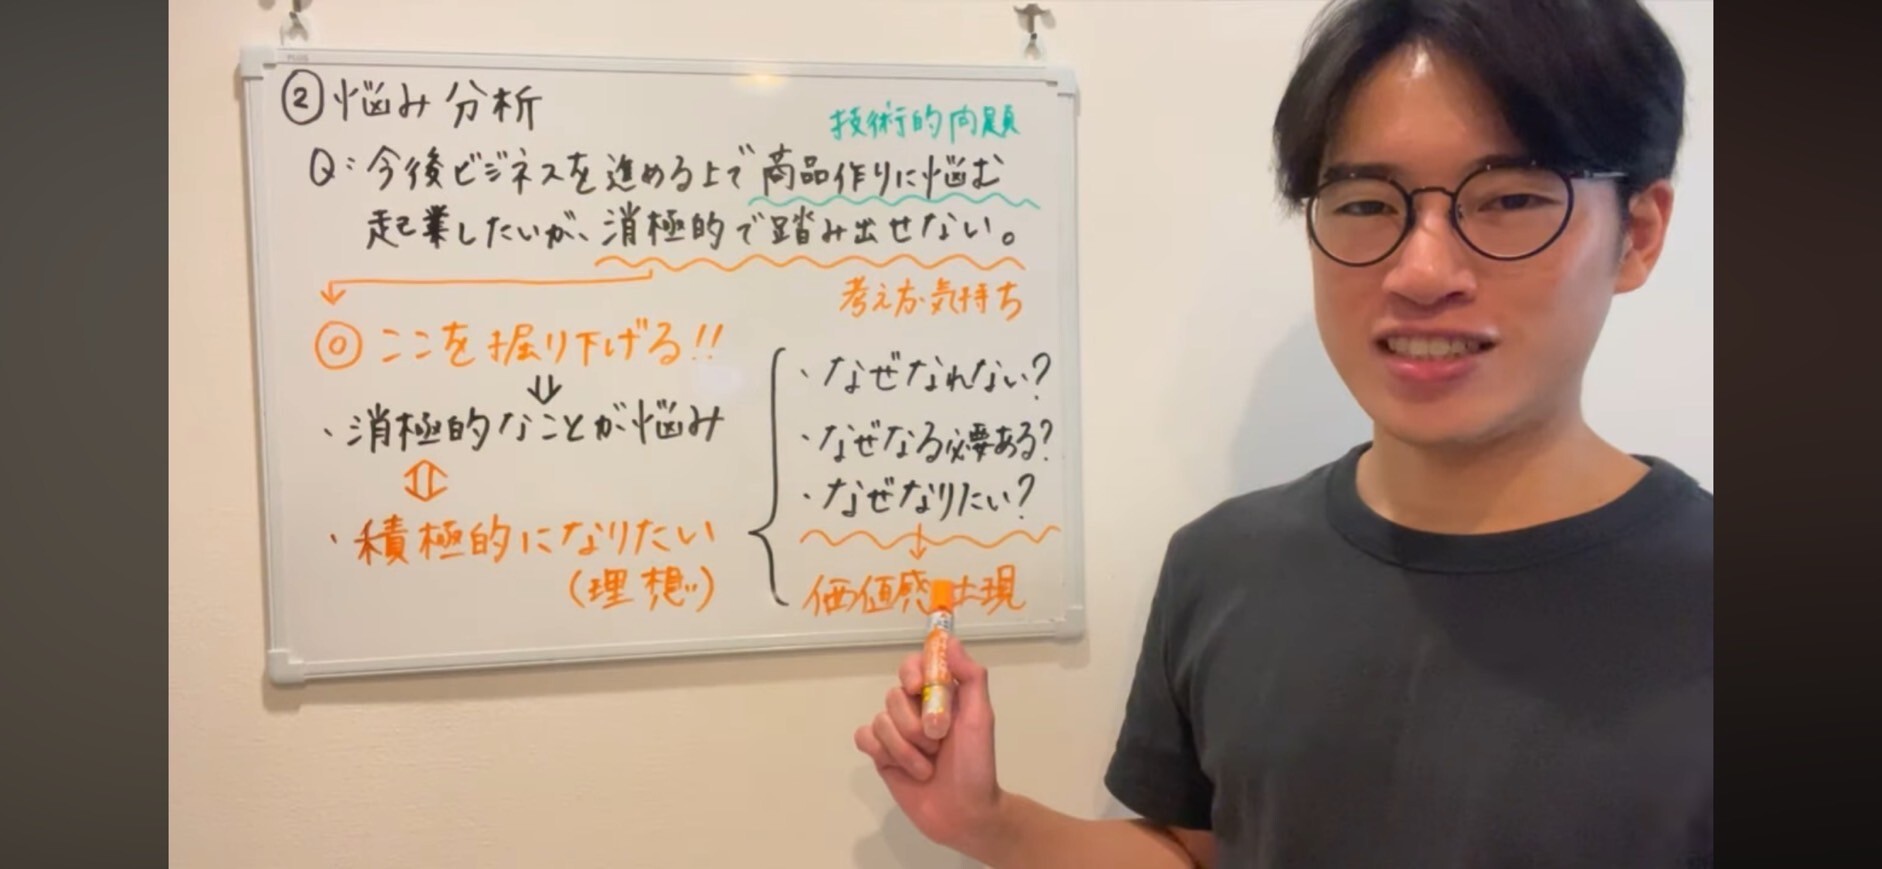 ②悩み分析
技術的問題
Q:今後ビジネスを進める上で商品作りに悩む
起業したいが、消極的で踏み出せない。
考え方気持ち
◎ここを掘り下げる!!
・消極的なことが悩み
・積極的になりたい
(理想)
・なぜなれない?
・なぜなる必要ある?
・なぜなりたい?
価値感出現